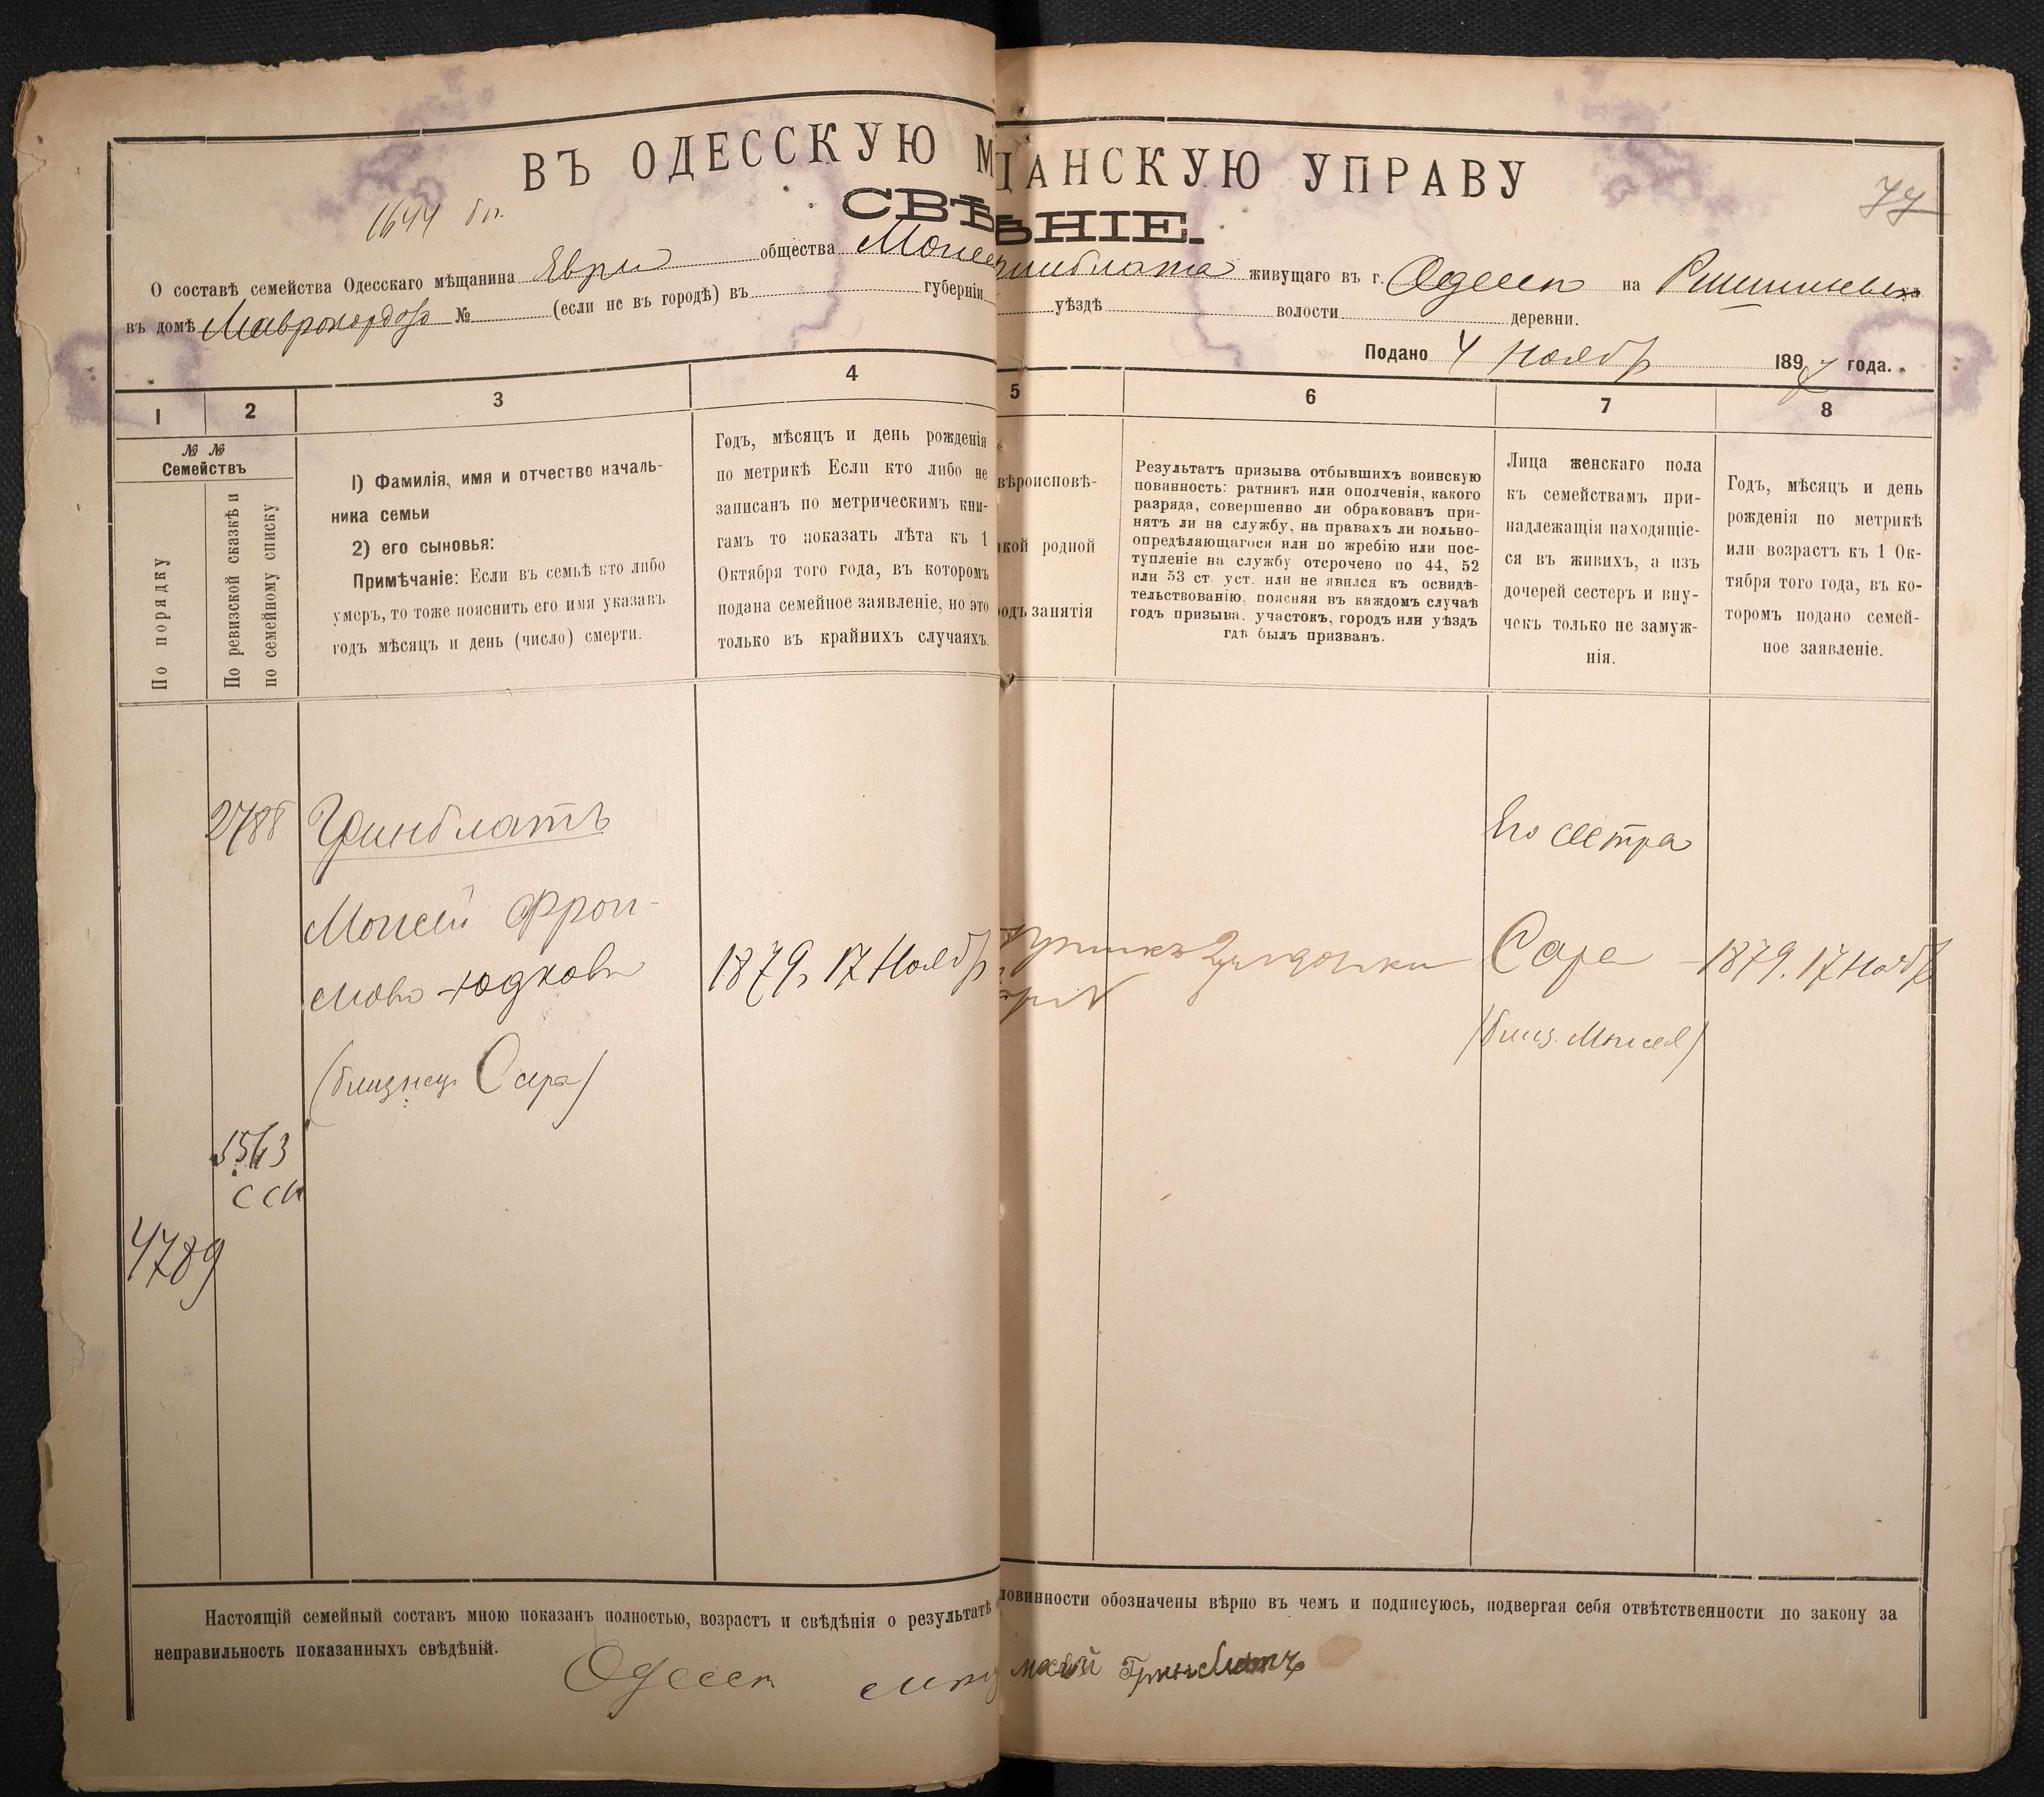 ВЪ ОДЕССКУЮ М ЩАНСКУЮ УПРАВУ
77
СВѢ ѢНІЕ.
1644
О составѣ семейства Одесскаго мѣщанина Евре общества Моисе ринблата живущаго въ г. Одессѣ на Ришельев
въ домѣ Маврокордато № (если не въ городѣ) въ губерніи уѣздѣ волости деревни.
Подано 4 Ноябр 1897 года.
1 2 3 4 5 6 7 8
№ №
Семействъ
По порядку
По ревизской сказкѣ и
по семейному списку
1) Фамилія, имя и отчество началь-
ника семьи
2) его сыновья:
Примѣчаніе: Если въ семьѣ кто либо
умеръ, то тоже пояснить его имя указавъ
годъ мѣсяцъ и день (число) смерти.
Годъ, мѣсяцъ и день рожденія
по метрикѣ Если кто либо не
записанъ по метрическимъ кни-
гамъ то показать лѣта къ 1
Октября того года, въ которомъ
подана семейное заявленіе, но это
только въ крайнихъ случаяхъ.
вѣроисповѣ-
кой родной
одъ занятія
Результатъ призыва отбывшихъ воинскую
повинность: ратникъ или ополченія, какого
разряда, совершенно ли обракованъ при-
нятъ ли на службу, на правахъ ли вольно-
опредѣляющагося или по жребію или пос-
тупленіе на службу отсрочено по 44, 52
или 53 ст. уст. или не явился къ освидѣ-
тельствованію. поясняя въ каждомъ случаѣ
годъ призыва. участокъ, городъ или уѣздъ
гдѣ былъ призванъ.
Лица женскаго пола
къ семействамъ при-
надлежащія находящіе-
ся въ живихъ, а изъ
дочерей сестеръ и вну-
чекъ только не замуж-
нія.
Годъ, мѣсяцъ и день
рожденія по метрикѣ
или возрастъ къ 1 Ок-
тября того года, въ ко-
торомъ подано семей-
ное заявленіе.
2788 Гринблатъ
Его сестра
Моисей Фрои-
мовъ-Юдковъ
1879, 17 Ноябр
Сара
1879. 17 Ноябр
(близнец. Сара)
(близ. Моисея)
1563
4789
Настоящій семейный составъ мною показанъ полностью, возрастъ и свѣдѣнія о результатѣ повинности обозначены вѣрно въ чемъ и подписуюсь, подвергая себя отвѣтственности по закону за
неправильность показанныхъ свѣдѣній.
Одесск мѣщ Мосей Гринблатъ